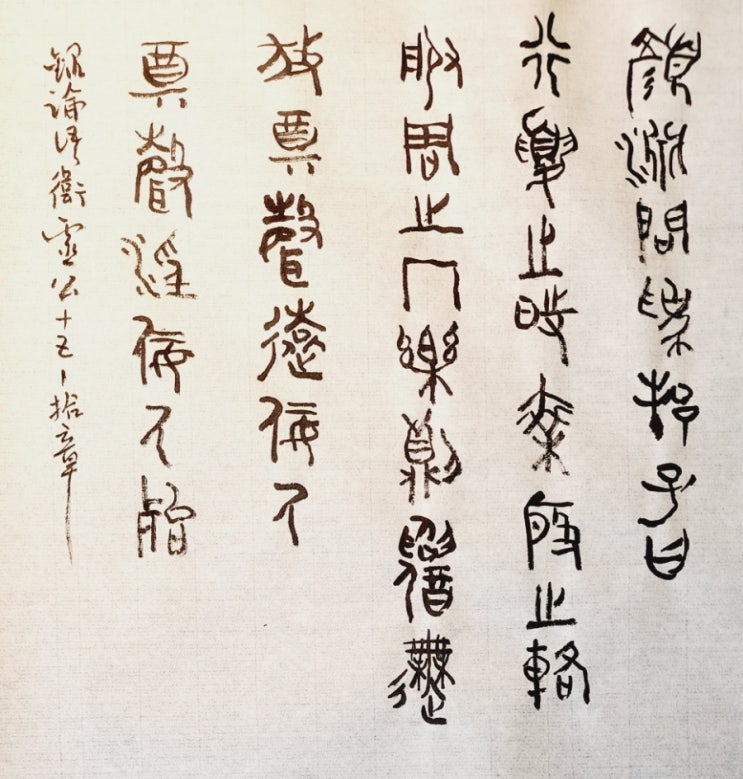 顏淵問為邦子曰
行夏之時乘殷之輅
服周之冕樂則韶舞
放鄭聲遠佞人
鄭聲淫佞人殆
錄論語衛靈公十五、拾章